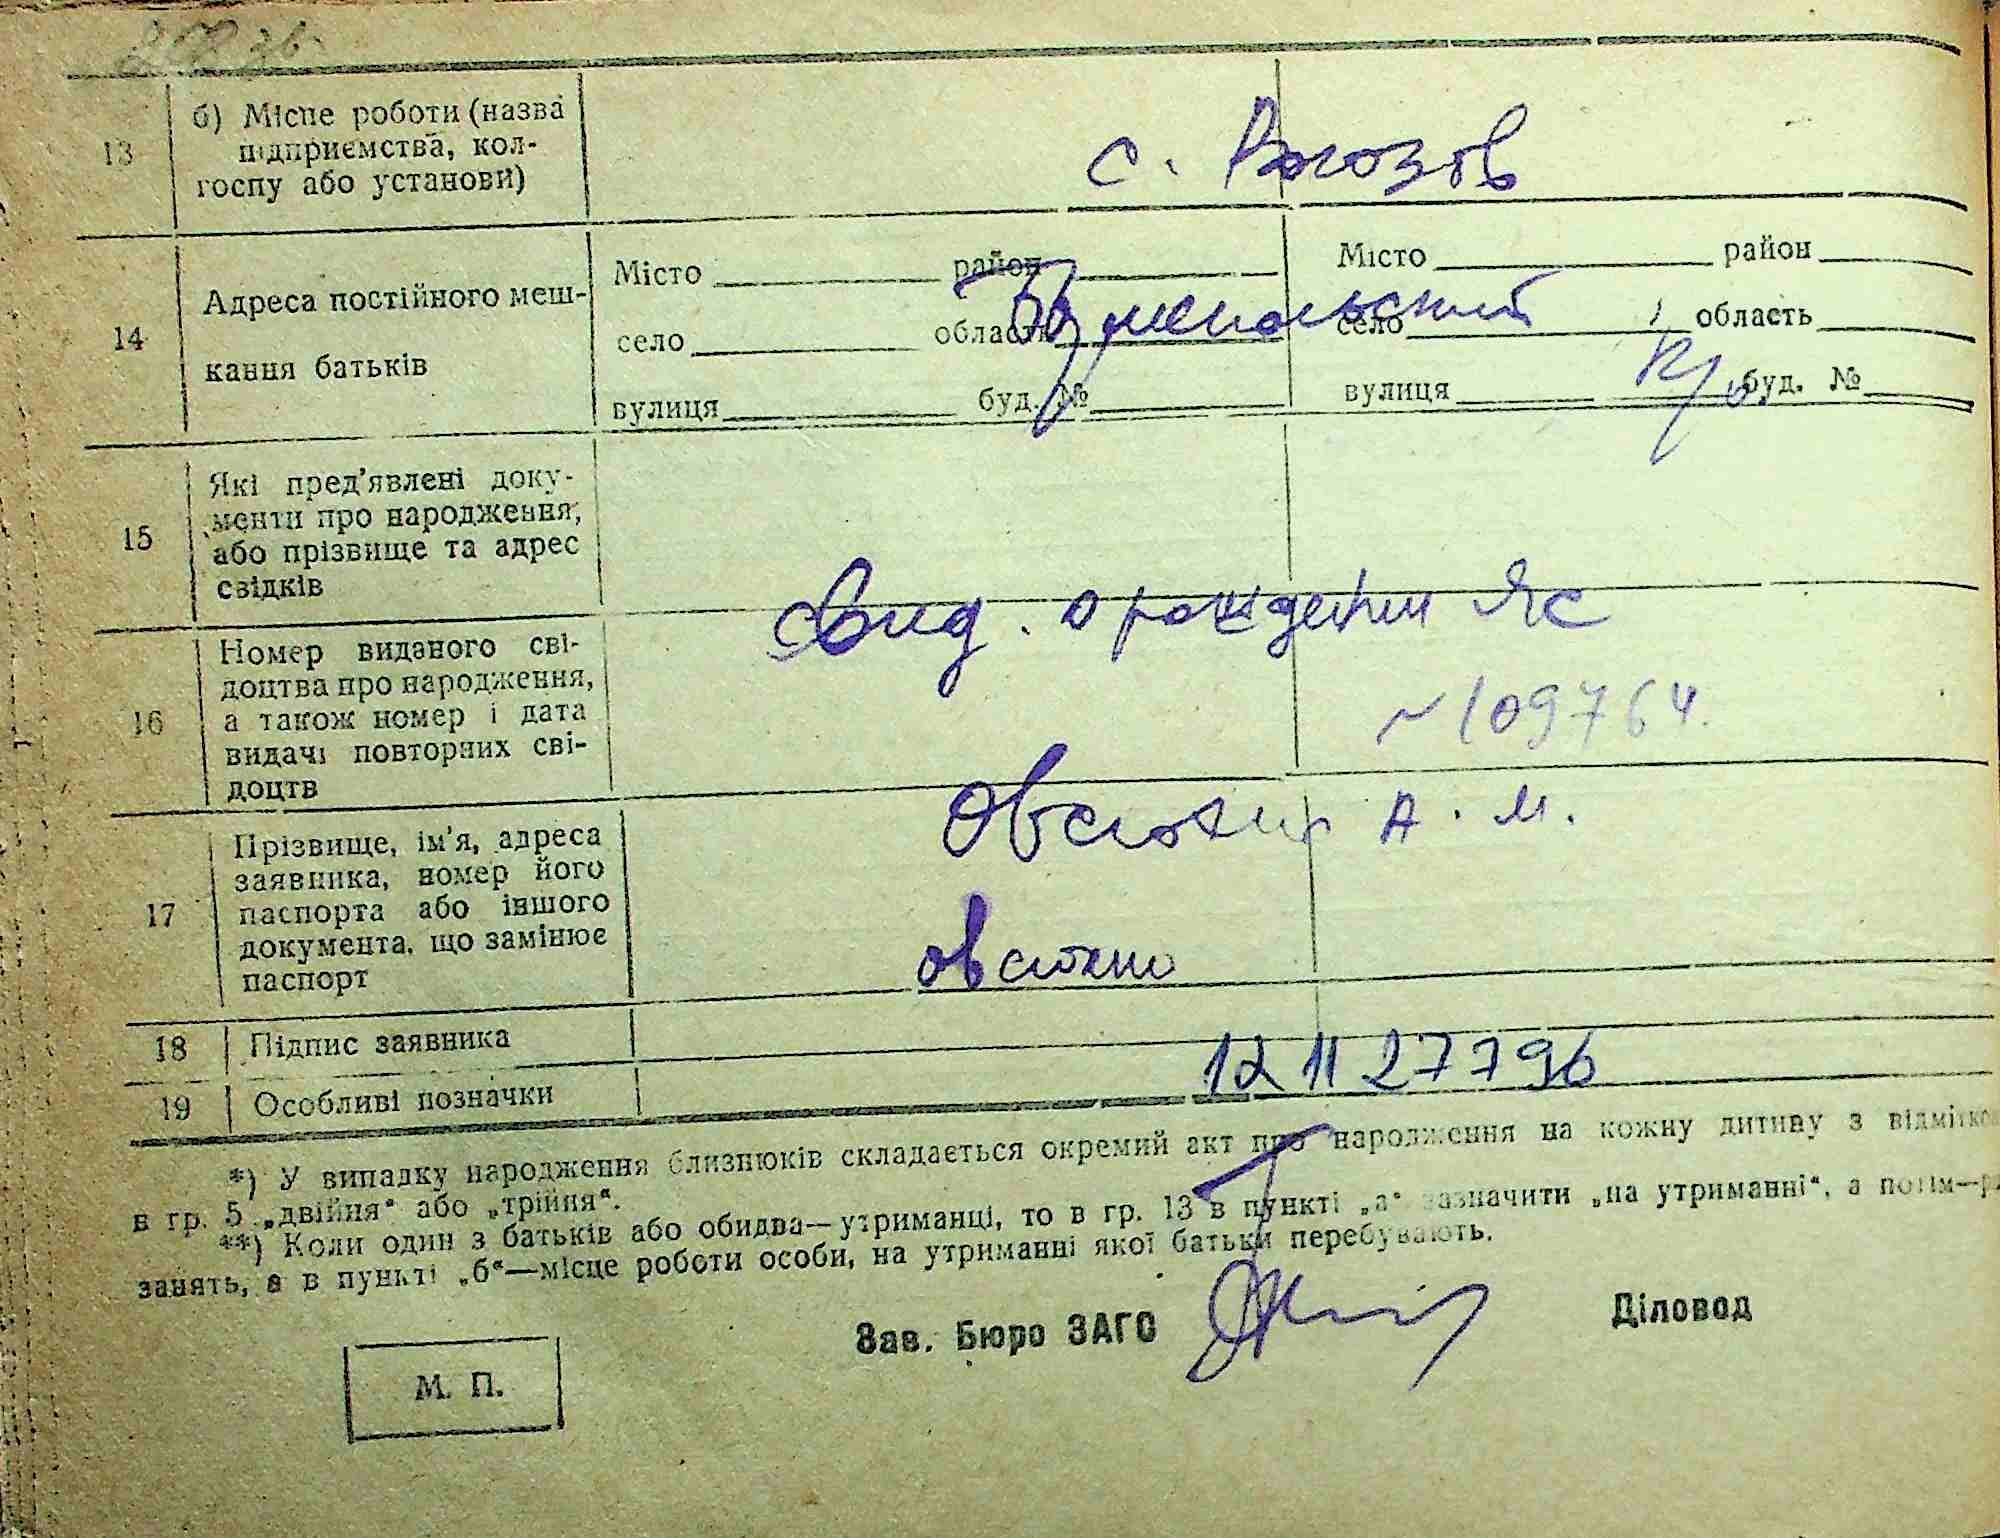 13
б) Місце роботи (назва
підприємства, кол-
госпу або установи)
с. Рогозов
14
Адреса постійного меш-
кання батьків
Місто район
село область
вулиця буд. №
Місто район
село область
вулиця буд. №
Бориспольский
15
Які пред'явлені доку-
менти про народження,
або прізвище та адрес
свідків
Свид. о рождении Яс
16
Номер виданого сві-
доцтва про народження,
а також номер і дата
видачі повторних сві-
доцтв
~ 109764.
17
Прізвище, ім'я, адреса
заявника, номер його
паспорта або іншого
документа, що замінює
паспорт
А. М.
18
Підпис заявника
19
Особливі позначки
12 11 27796
*) У випадку народження близнюків складається окремий акт про народження на кожну дитину з відміткою
в гр. 5 „двійня“ або „трійня“.
**) Коли один з батьків або обидва—утриманці, то в гр. 13 в пункті „а“ зазначити „на утриманні“, а потім—р
занять, а в пункті „б“—місце роботи особи, на утриманні якої батьки перебувають.
Зав. Бюро ЗАГС
Діловод
М. П.